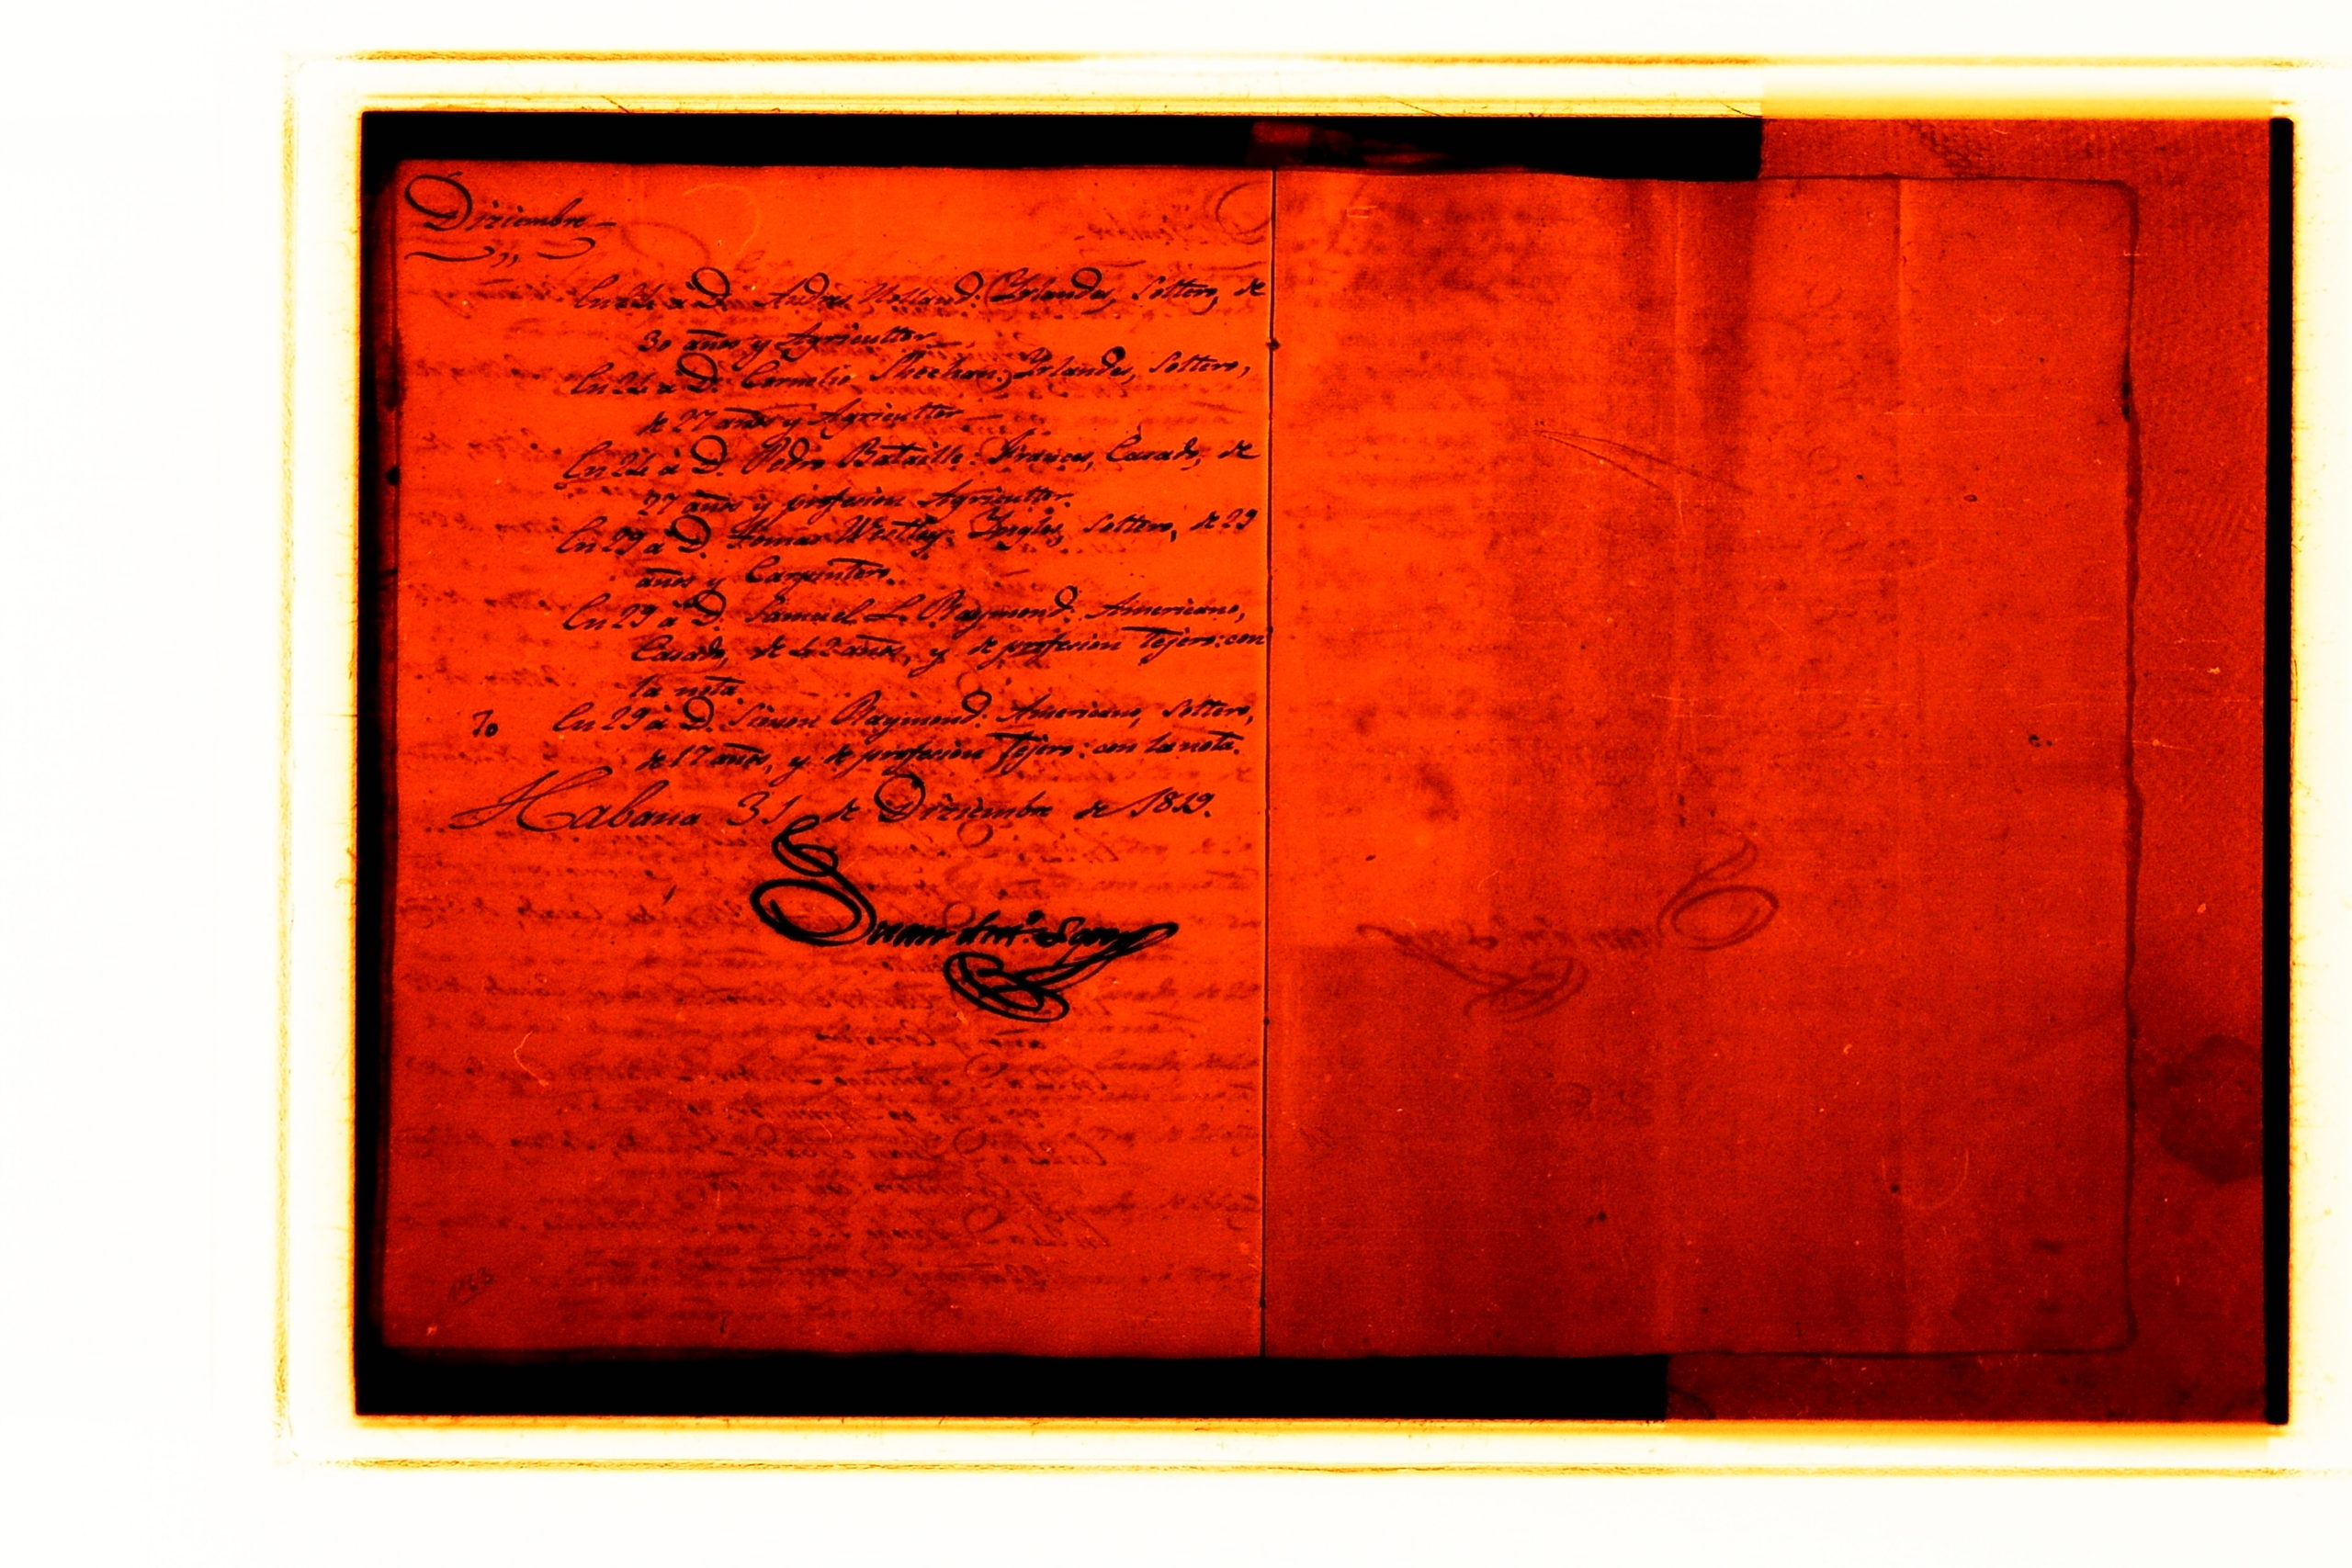 Diziembre
En 24 a D. Andres Holland: Yrlandes, Soltero, de
30 años y Agricultor
En 24 a D. Cornelio Sheehan, Yrlandes, Soltero,
de 27 años y Agricultor
En 24 à D. Pedro Bataille: Frances, Casado, de
37 años y profesion Agricultor.
En 29 a D. Tomas Westley: Yngles, Soltero, de 29
años y Carpintero.
En 29 à D. Samuel L. Raymond: Americano,
Casado, de 42 años, y de profesion Tejero: con
la nota
70 En 29 à D. Simon Raymond: Americano, Soltero,
de 17 años, y de profesion Tejero: con la nota.
Habana 31 de Diziembre de 1819.
Juan